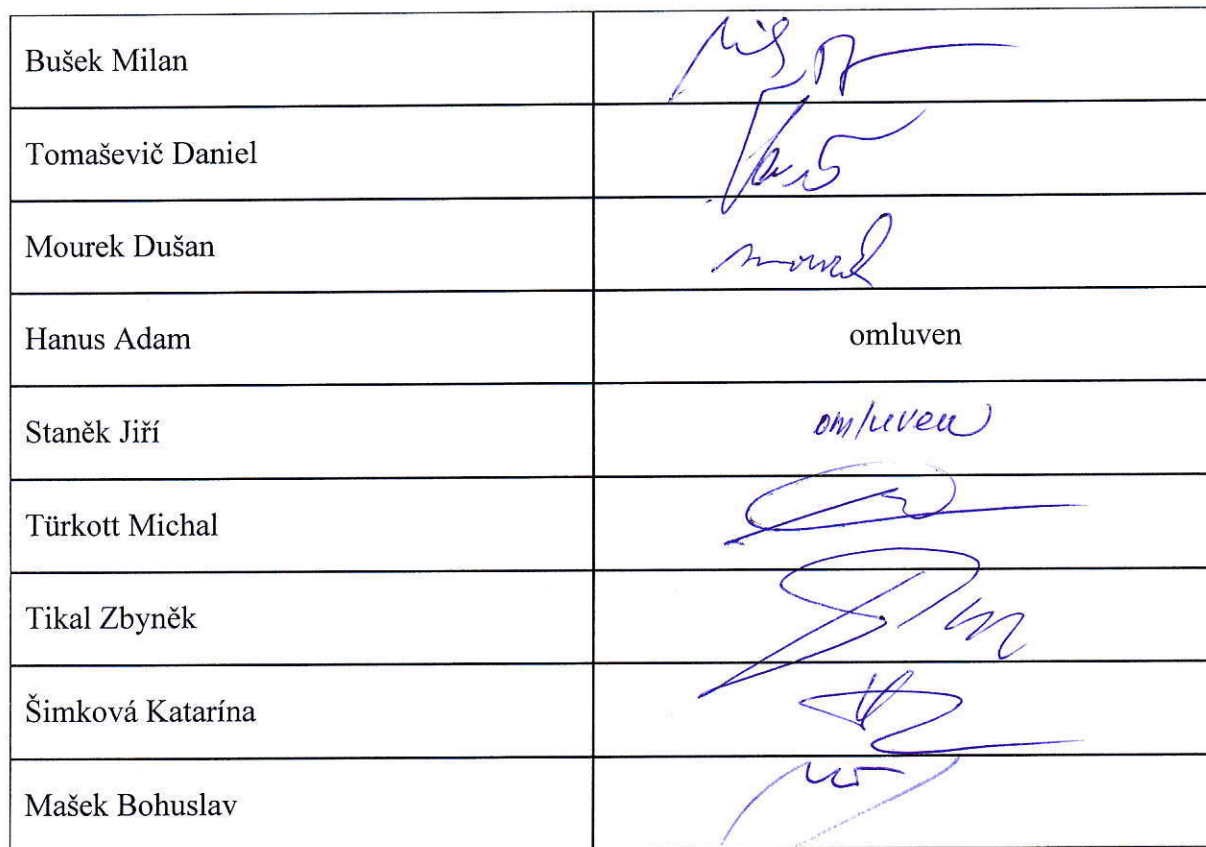 Bušek Milan
Tomaševič Daniel
Mourek Dušan
mourek
Hanus Adam omluven
Staněk Jiří omluven
Türkott Michal
Tikal Zbyněk
Šimková Katarína
Mašek Bohuslav